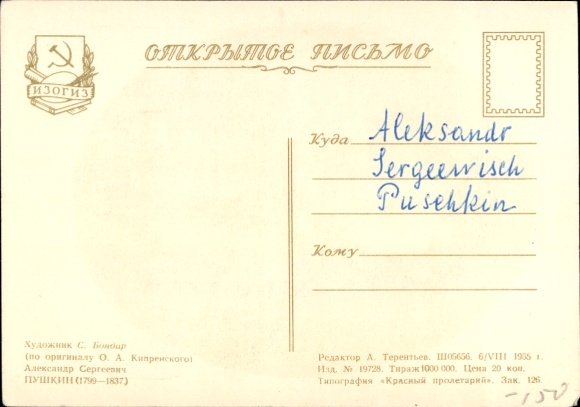 ОТКРЫТОЕ ПИСЬМО
ИЗОГИЗ
Куда Aleksandr
Sergeewisch
Puschkin
Кому
Художник С. Бондар
(по оригиналу О. А. Кипренского)
Александр Сергеевич
ПУШКИН (1799—1837)
Редактор А. Терентьев. Ш05656. 6/VIII 1955 г.
Изд. № 19728. Тираж 1000 000. Цена 20 коп.
Типография «Красный пролетарий». Зак. 126.
-150